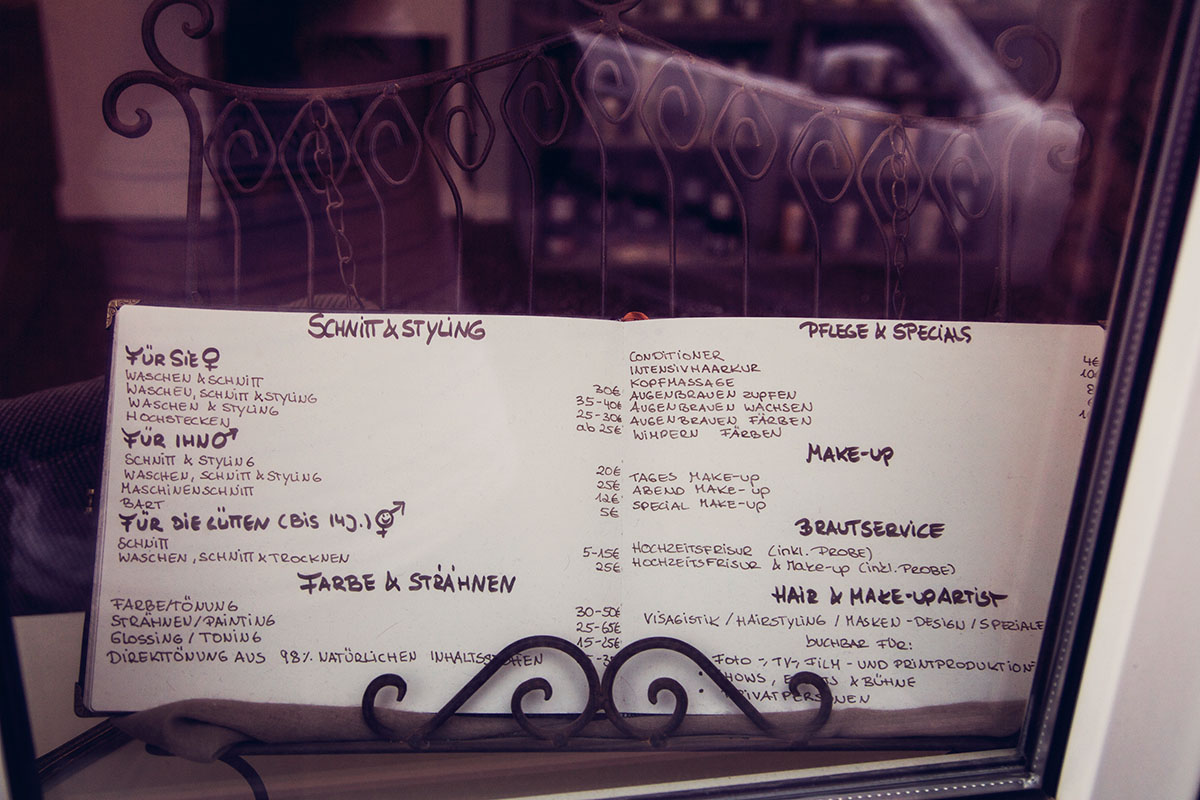 SCHNITT & STYLING
FÜR SIE ♀
WASCHEN & SCHNITT 30€
WASCHEN, SCHNITT & STYLING 35-40€
WASCHEN & STYLING 25-30€
HOCHSTECKEN ab 25€
FÜR IHN ♂
SCHNITT & STYLING 20€
WASCHEN, SCHNITT & STYLING 25€
MASCHINENSCHNITT 12€
BART 5€
FÜR DIE LÜTTEN (BIS 14J.)
SCHNITT 5-15€
WASCHEN, SCHNITT & TROCKNEN 25€
FARBE & STRÄHNEN
FARBE/TÖNUNG 30-50€
STRÄHNEN/PAINTING 25-65€
GLOSSING / TONING 15-25€
DIREKTTÖNUNG AUS 98% NATÜRLICHEN
PFLEGE & SPECIALS
CONDITIONER 4€
INTENSIVHAARKUR
KOPFMASSAGE
AUGENBRAUEN ZUPFEN
AUGENBRAUEN WACHSEN
AUGENBRAUEN FÄRBEN
WIMPERN FÄRBEN
MAKE-UP
TAGES MAKE-UP
ABEND MAKE-UP
SPECIAL MAKE-UP
BRAUTSERVICE
HOCHZEITSFRISUR (inkl. PROBE)
HOCHZEITSFRISUR & Make-up (inkl. PROBE)
HAIR & MAKE-UP ARTIST
VISAGISTIK / HAIRSTYLING / MASKEN-DESIGN / SPEZIALE
BUCHBAR FÜR:
FOTO-, TV-, FILM- UND PRINTPRODUKTION
& BÜHNE